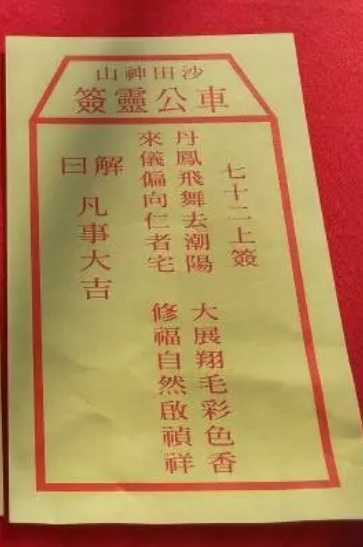 沙田神山
車公靈簽
七十二上簽
丹鳳飛舞去潮陽
大展翔毛彩色香
來儀偏向仁者宅
修福自然啟禎祥
解曰
凡事大吉